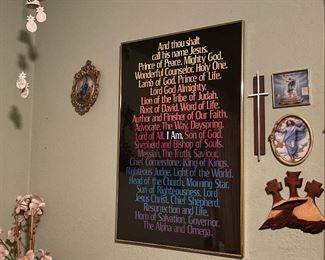 And thou shalt
call his name Jesus,
Prince of Peace, Mighty God,
Wonderful Counselor, Holy One,
Lamb of God, Prince of Life,
Lord God Almighty,
Lion of the Tribe of Judah,
Root of David, Word of Life,
Author and Finisher of Our Faith,
Advocate, The Way, Dayspring,
Lord of All, I Am, Son of God,
Shepherd and Bishop of Souls,
Messiah, The Truth, Saviour,
Chief Cornerstone, King of Kings,
Righteous Judge, Light of the World,
Head of the Church, Morning Star,
Sun of Righteousness, Lord
Jesus Christ, Chief Shepherd,
Resurrection and Life,
Horn of Salvation, Governor,
The Alpha and Omega.